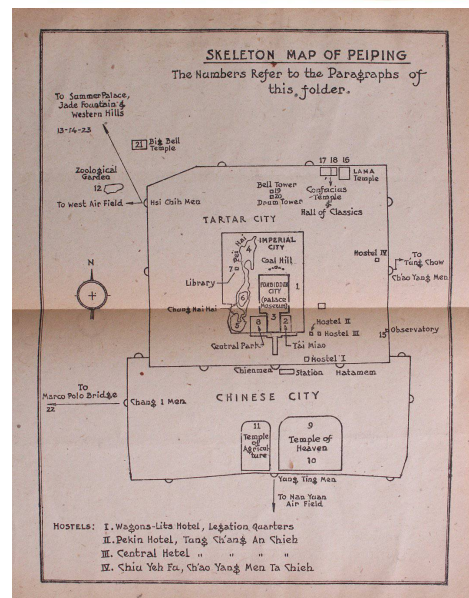 SKELETON MAP OF PEIPING
The Numbers Refer to the Paragraphs of
this folder.
To Summer Palace,
Jade Fountain &
Western Hills
13-14-23
21 Big Bell
Temple
Zoological
Garden
12
To West Air Field
Hsi Chih Men
17 18 16
LAMA
Temple
Bell Tower
19
20
Drum Tower
Confucius
Temple
Hall of Classics
TARTAR CITY
IMPERIAL
CITY
Coal Hill
Pei Hai
4
7
Library
1
FORBIDDEN
CITY
(PALACE
MUSEUM)
6
Chung Hai Hai
5
8
3
2
Hostel IV
To
Tung Chow
Ch'ao Yang Men
N
Central Park
Tai Miao
Hostel II
Hostel III
15
Observatory
Hostel I
Chienmen
Station
Hatamem
To
Marco Polo Bridge
22
Chang I Men
CHINESE CITY
11
Temple
of
Agricul-
ture
9
Temple of
Heaven
10
Yung Ting Men
To Nan Yuan
Air Field
HOSTELS: I. Wagons-Lits Hotel, Legation Quarters
II. Pekin Hotel, Tung Ch'ang An Chieh
III. Central Hetel " " " "
IV. Chiu Yeh Fu, Ch'ao Yang Men Ta Chieh